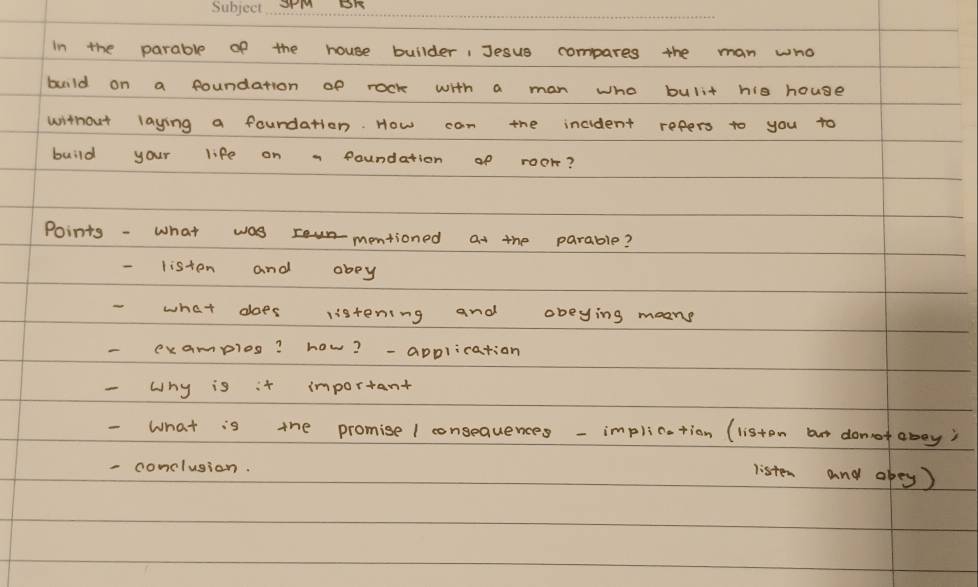 Subject SPM BK
In the parable of the house builder, Jesus compares the man who
build on a foundation of rock with a man who bulit his house
without laying a foundation. How can the incident refers to you to
build your life on a foundation of rock?
Points - what was mentioned at the parable?
- listen and obey
- what does listening and obeying means
- examples? how? - application
- why is it important
- what is the promise / consequences - implication (listen but do not obey;
- conclusion. listen and obey)